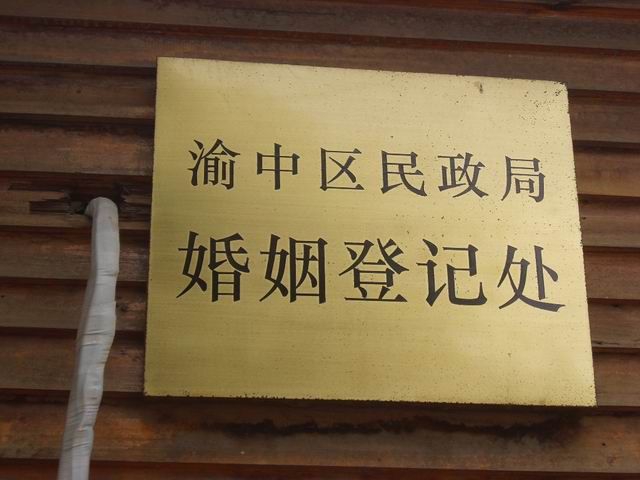 渝中区民政局
婚姻登记处